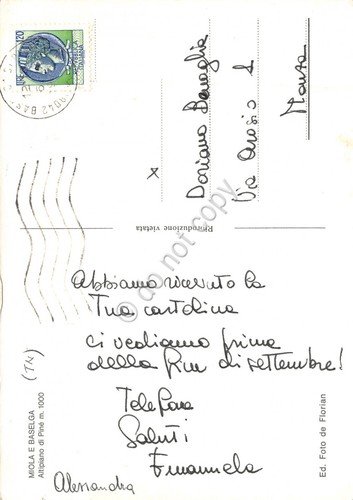 Abbiamo ricevuto la
Tua cartolina
ci vediamo prima
della fine di settembre!
Telefona
Saluti
Emanuela
Alessandra
x
Doriano
Via
1
Monza
Riproduzione vietata
MIOLA E BASELGA
Altipiano di Piné m. 1000
(TN)
Ed. Foto de Florian
120
© do not copy